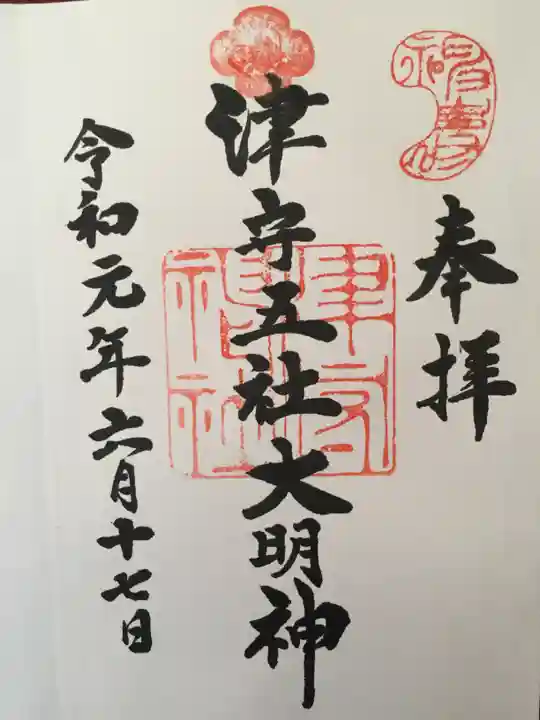 奉拝
津守五社大明神
令和元年六月十七日